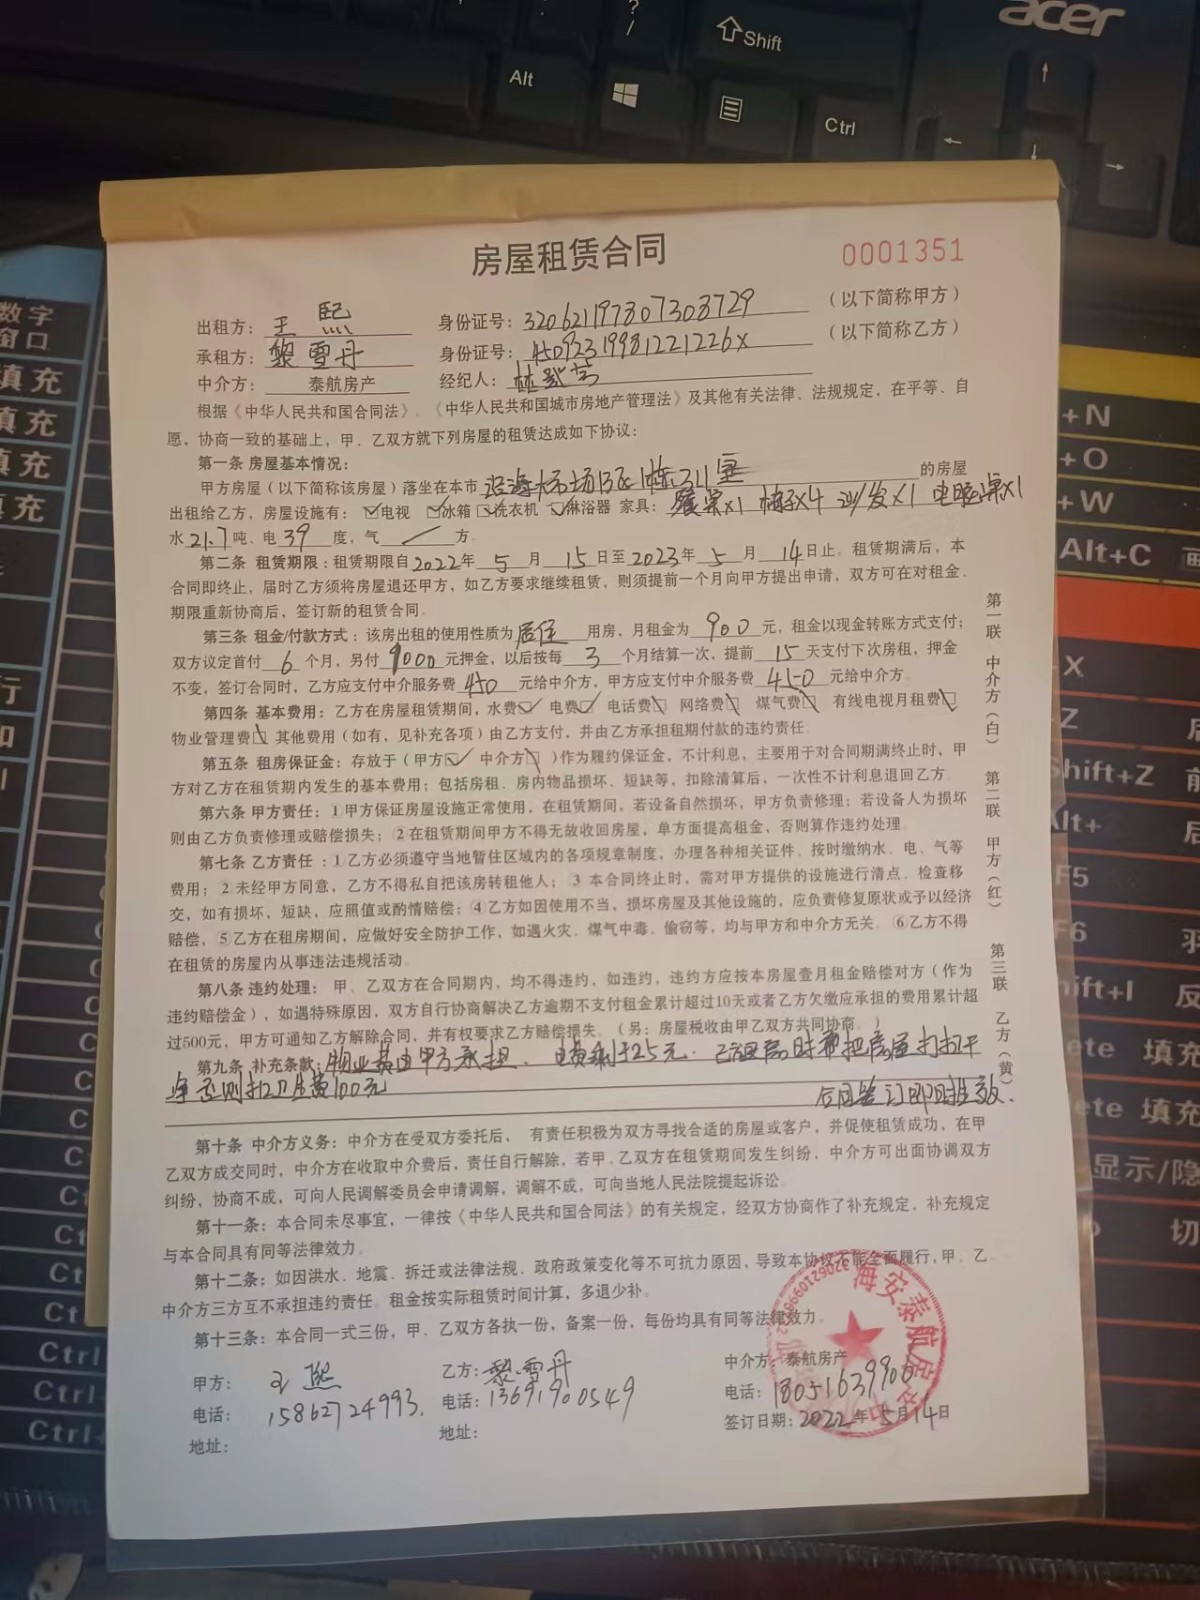 acer
?
/
Shift
Alt
Ctrl
数字
窗口
填充
填充
填充
填充
+N
+O
+W
Alt+C
房屋租赁合同
0001351
出租方：王熙 身份证号：320621197307308729 （以下简称甲方）
承租方：黎雪丹 身份证号：45092319981221226x （以下简称乙方）
中介方：泰航房产 经纪人：林
根据《中华人民共和国合同法》、《中华人民共和国城市房地产管理法》及其他有关法律、法规规定，在平等、自
愿，协商一致的基础上，甲、乙双方就下列房屋的租赁达成如下协议：
第一条 房屋基本情况：
甲方房屋（以下简称该房屋）落坐在本市 海 场B区1栋311室 的房屋
出租给乙方，房屋设施有：☑电视 ☑冰箱 洗衣机 淋浴器 家具：餐桌x1 椅子x4 沙发x1 电脑桌x1
水21.7吨、电39度，气／方。
第二条 租赁期限：租赁期限自2022年5月15日至2023年5月14日止。租赁期满后，本
合同即终止，届时乙方须将房屋退还甲方，如乙方要求继续租赁，则须提前一个月向甲方提出申请，双方可在对租金、
期限重新协商后，签订新的租赁合同。
第三条 租金/付款方式：该房出租的使用性质为居住用房，月租金为900元，租金以现金转账方式支付；
双方议定首付6个月，另付1000元押金，以后按每3个月结算一次，提前15天支付下次房租，押金
不变，签订合同时，乙方应支付中介服务费450元给中介方，甲方应支付中介服务费450元给中介方。
第四条 基本费用：乙方在房屋租赁期间，水费☑ 电费☑ 电话费□ 网络费□ 煤气费□ 有线电视月租费□
物业管理费□ 其他费用（如有，见补充各项）由乙方支付，并由乙方承担租期付款的违约责任。
第五条 租房保证金：存放于（甲方☑ 中介方□ ）作为履约保证金，不计利息，主要用于对合同期满终止时，甲
方对乙方在租赁期内发生的基本费用；包括房租、房内物品损坏、短缺等，扣除清算后，一次性不计利息退回乙方。
第六条 甲方责任：①甲方保证房屋设施正常使用，在租赁期间，若设备自然损坏，甲方负责修理；若设备人为损坏
则由乙方负责修理或赔偿损失；②在租赁期间甲方不得无故收回房屋，单方面提高租金，否则算作违约处理。
第七条 乙方责任：①乙方必须遵守当地暂住区域内的各项规章制度，办理各种相关证件、按时缴纳水、电、气等
费用；②未经甲方同意，乙方不得私自把该房转租他人；③本合同终止时，需对甲方提供的设施进行清点、检查移
交，如有损坏，短缺，应照值或酌情赔偿；④乙方如因使用不当，损坏房屋及其他设施的，应负责修复原状或予以经济
赔偿，⑤乙方在租房期间，应做好安全防护工作，如遇火灾、煤气中毒、偷窃等，均与甲方和中介方无关。⑥乙方不得
在租赁的房屋内从事违法违规活动。
第八条 违约处理：甲、乙双方在合同期内，均不得违约，如违约，违约方应按本房屋壹月租金赔偿对方（作为
违约赔偿金），如遇特殊原因，双方自行协商解决乙方逾期不支付租金累计超过10天或者乙方欠缴应承担的费用累计超
过500元，甲方可通知乙方解除合同，并有权要求乙方赔偿损失。（另：房屋税收由甲乙双方共同协商。）
第九条 补充条款：物业费由甲方承担、电费剩于25元、 时需把房屋打扫干
净否则扣卫生费100元
合同签订即时生效.
第十条 中介方义务：中介方在受双方委托后， 有责任积极为双方寻找合适的房屋或客户，并促使租赁成功，在甲
乙双方成交同时，中介方在收取中介费后，责任自行解除，若甲、乙双方在租赁期间发生纠纷，中介方可出面协调双方
纠纷，协商不成，可向人民调解委员会申请调解，调解不成，可向当地人民法院提起诉讼。
第十一条：本合同未尽事宜，一律按《中华人民共和国合同法》的有关规定，经双方协商作了补充规定，补充规定
与本合同具有同等法律效力。
第十二条：如因洪水、地震、拆迁或法律法规、政府政策变化等不可抗力原因，导致本协议不能全面履行，甲、乙、
中介方三方互不承担违约责任。租金按实际租赁时间计算，多退少补。
第十三条：本合同一式三份，甲、乙双方各执一份，备案一份，每份均具有同等法律效力。
甲方：王熙 乙方：黎雪丹 中介方：泰航房产
电话：15862724993. 电话：13691900549 电话：18051639900
地址： 地址： 签订日期：2022年5月14日
第一联 中介方（白） 第二联 甲方（红） 第三联 乙方（黄）
海安泰航房产
Ctrl
Ctrl
Ctrl+
-X
-Z
Shift+Z 前
Alt+
F5
F6
ift+I 反
ete 填充
ete 填充
显示/隐
切